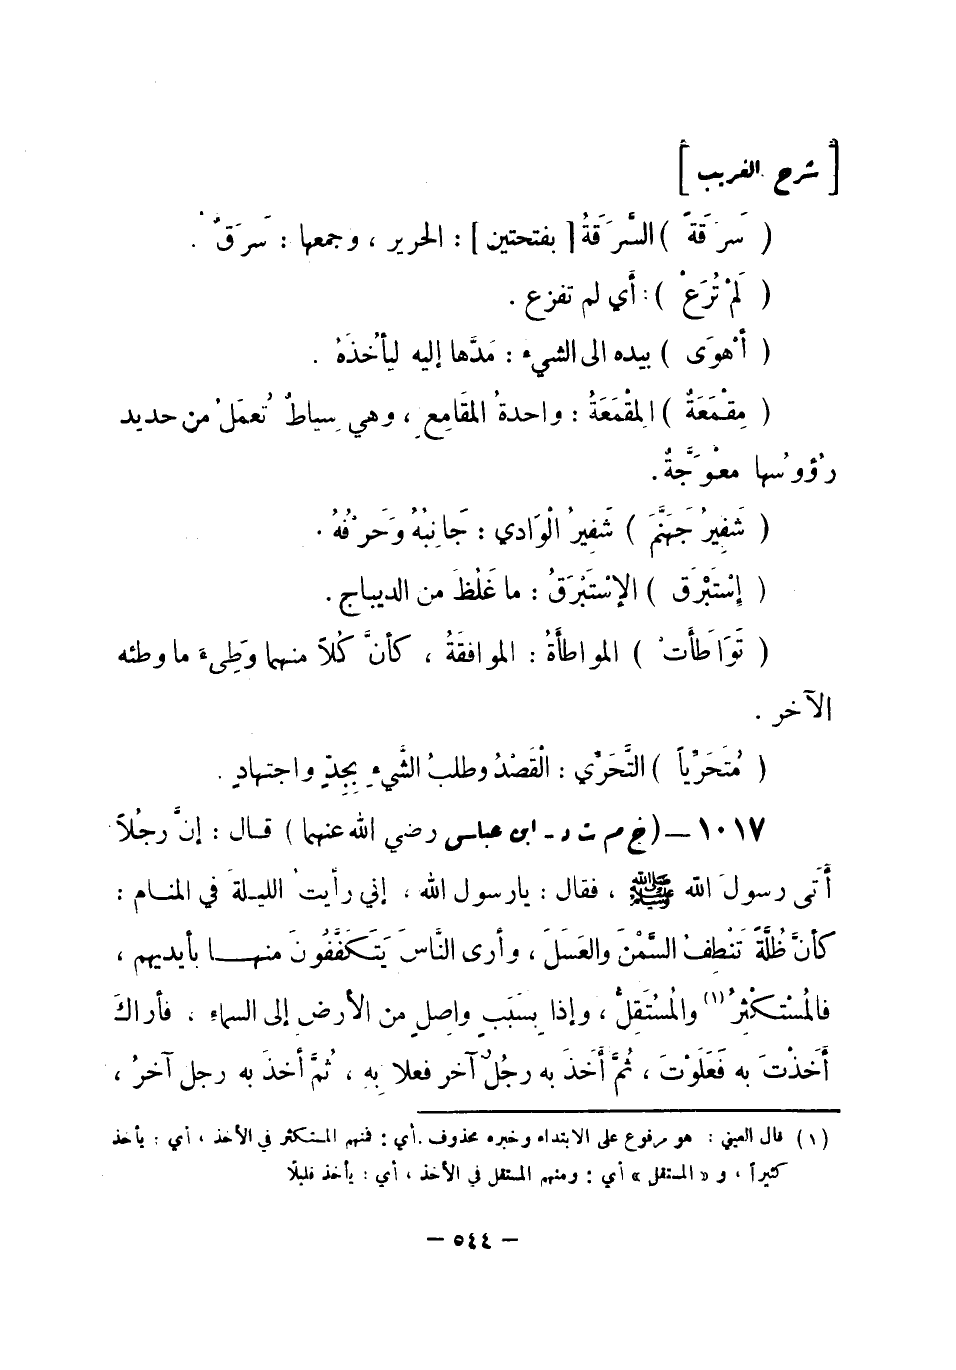 [ شرح الغريب ]
( سَرَقَةً ) السَّرَقَةُ [ بفتحتين ] : الحرير ، وجمعها : سَرَقٌ .
( لَمْ تُرَعْ ) : أي لم تفزع .
( أَهْوَى ) بيده الى الشيء : مَدَّها إليه ليأخُذَهُ .
( مِقْمَعَةٌ ) المِقْمَعَةُ : واحدةُ المقَامِعِ ، وهي سِياطٌ تُعمَلُ من حديد
رُؤوُسها معْوَجَّةٌ .
( شَفِيرُ جَهَنَّمَ ) شَفِيرُ الْوَادي : جَانِبُهُ وَحَرْفُهُ .
( إِسْتَبْرَق ) الإسْتَبْرَقُ : ما غَلُظَ من الديباج .
( تَوَاطَأَتْ ) المواطأَةُ : الموافقَةُ ، كأنَّ كُلاً منهما وَطِىءَ ما وطئه
الآخر .
( مُتَحَرِّياً ) التَّحَرِّي : القَصْدُ وطلبُ الشَّيءِ بِجِدٍّ واجتهادٍ .
١٠١٧ — ( خ م ت د - ابن عباس رضي الله عنهما ) قال : إنَّ رجُلاً
أتى رسولَ الله ﷺ ، فقال : يارسول الله ، إني رأيتُ الليلةَ في المنام :
كأنَّ ظُلَّةً تَنْطِفُ السَّمْنَ والعَسَلَ ، وأرى النَّاسَ يَتَكَفَّفُونَ منهـا بأيديهم ،
فالمُسْتكْثِرُ (١) والمُسْتَقِلُّ ، وإذا بِسَبَبٍ واصِلٍ من الأرضِ إلى السماءِ ، فأراكَ
أَخَذْتَ به فَعَلَوْتَ ، ثُمَّ أَخَذَ به رجُلٌ آخر فعلا بِهِ ، ثُمَّ أخذَ به رجل آخرُ ،
(١) قال العيني : هو مرفوع على الابتداء وخبره محذوف . أي : فمنهم المستكثر في الأخذ ، أي : يأخذ
كثيراً ، و « المستقل » أي : ومنهم المستقل في الأخذ ، أي : يأخذ قليلًا
— ٥٤٤ —